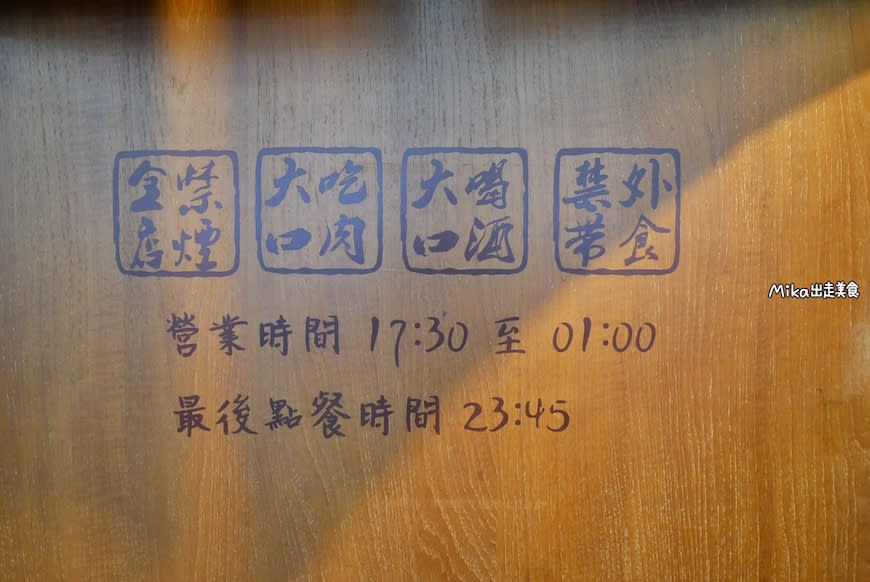 全店禁煙
大口吃肉
大口喝酒
禁帶外食
營業時間 17:30 至 01:00
最後點餐時間 23:45
Mika出走美食